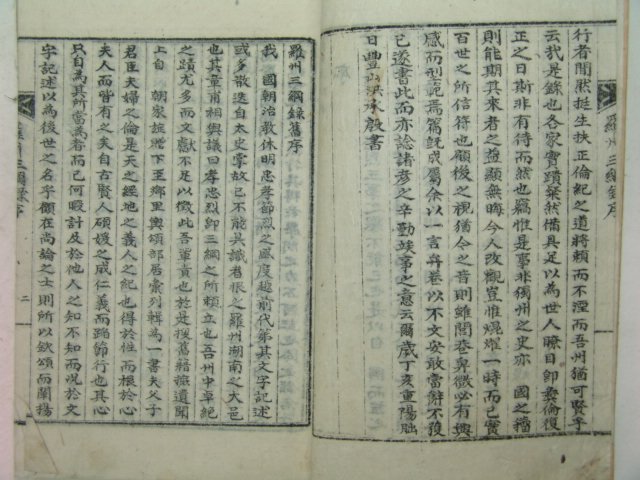 行者聞然挺生扶正倫紀之道將賴而不湮而吾州猶可賢乎
云我是錄也各家實蹟粲然備具足以為世人瞭目即彝倫復
正之日斯非有待而然也竊惟是事非獨州之史亦 國之
則能期其來者之益顯無晦今人改觀豈惟焜燿一時而已實
百世之所信符也顧後之視猶今之昔則雖閭巷卑微必有興
感而型範焉篇旣成屬余以一言弁卷以不文安敢當辭不獲
已遂書此而亦諗諸彦之辛勤竣事之意云爾歲丁亥重陽朏
日豊山洪承殷書
羅州三綱錄舊序
我 國朝治教休明忠孝節烈之風度越前代第其文字記述
或多散逸自太史掌故已不能具識者恨之羅州湖南之大邑
也其章甫相與議曰孝忠烈卽三綱之所賴立也吾州中卓絶
之蹟尤多而文獻不足以徵此吾輩責也於是搜舊籍摭遺聞
上自 朝家旌贈下至鄉里輿頌部居彙列輯為一書夫父子
君臣夫婦之倫是天之經地之義人之紀也得於性而根於心
夫人而皆有之天自古賢人碩媛之成仁義而蹈節行也其心
只自為其所當為者而已何暇計及於他人之知不知而況於文
字記述以為後世之名乎顧在尚論之士則所以欽頌而闡務
羅州三綱錄序
羅州三綱錄序
二